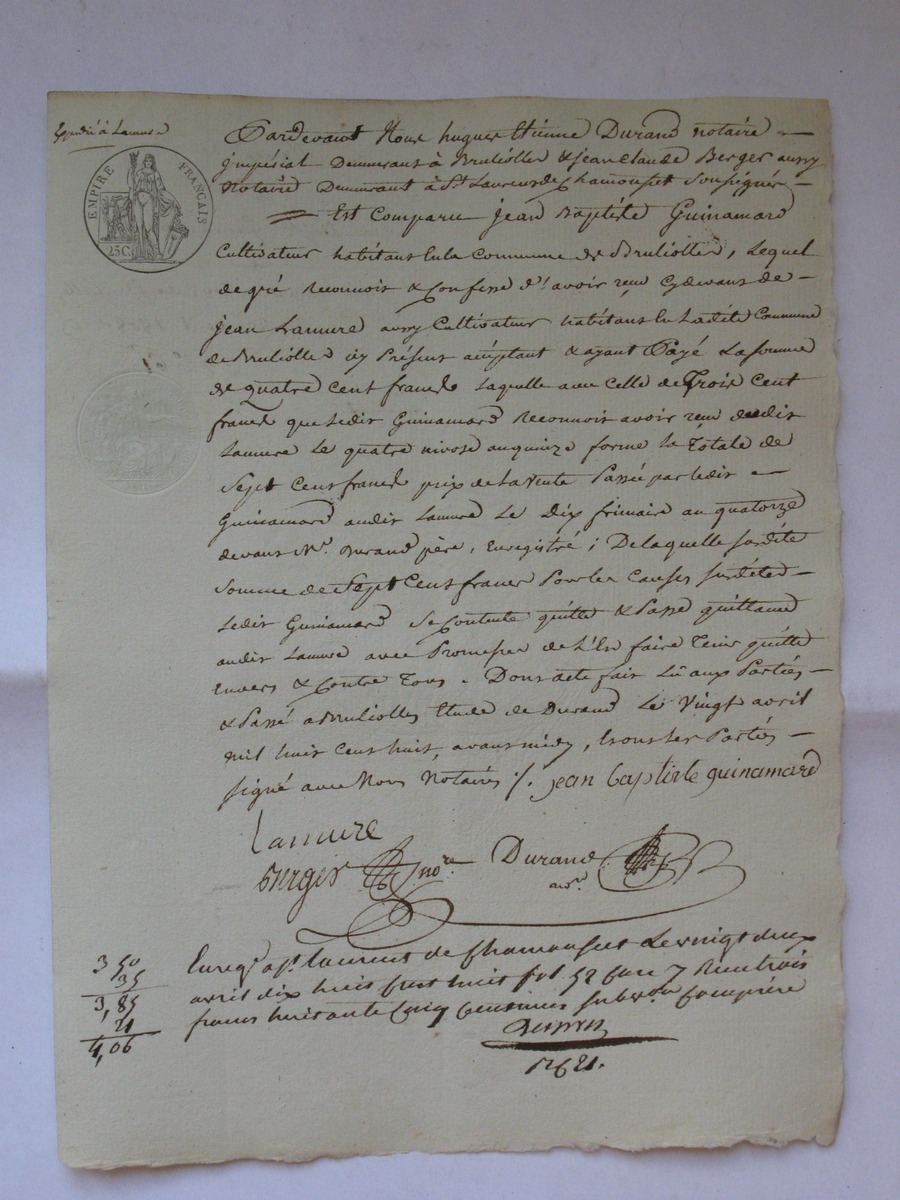 Expédié à Lamure
EMPIRE FRANÇAIS
25 C.
Pardevant Nous hugues Etienne Durand notaire
jmpérial Demeurant à Bruliolles & jean Claude Berger aussy
Notaire Demeurant à St. Laurent de Chamousset Soussignés
Est Comparu jean Baptiste Guinamard
Cultivateur habitant en la Commune de Brulliolles, Lequel
de gré Reconnoit & Confesse d'avoir reçu cydevant de
jean Lamure aussy Cultivateur habitant en Ladite Commune
de Brulliolles icy Présent acceptant & ayant Payé La somme
de quatre cent francs laquelle avec Celle de Trois Cent
francs que Ledit Guinamard Reconnoit avoir reçu dudit
Lamure Le quatre nivose an quinze forme la Totale de
Sept Cent francs prix de La vente Passée par Ledit
Guinamard audit Lamure Le Dix frimaire an quatorze
devant Me. Durand père, Enregistré ; De laquelle susdite
Somme de Sept Cent francs Pour les Causes susdites
Ledit Guinamard Se Contente quitte & Passe quittance
audit Lamure avec Promesse de L'En faire Tenir quitte
Envers & Contre Tous. Dont acte fait Lû aux Parties
& Passé à Brulliolles Etude de Durand Le Vingt avril
mil huit Cent huit, avant midy, & ont Les Parties
signé avec Nous Notaires ./. jean baptiste guinamard
Lamure
Berger nore. Durand
3 50
35
3,85
21
4,06
Enregé. à St. Laurent de Chamousset Le vingt deux
avril dix huit cent huit fol 52 case 7 Reçu trois
francs huitante Cinq Centimes subvon Comprise